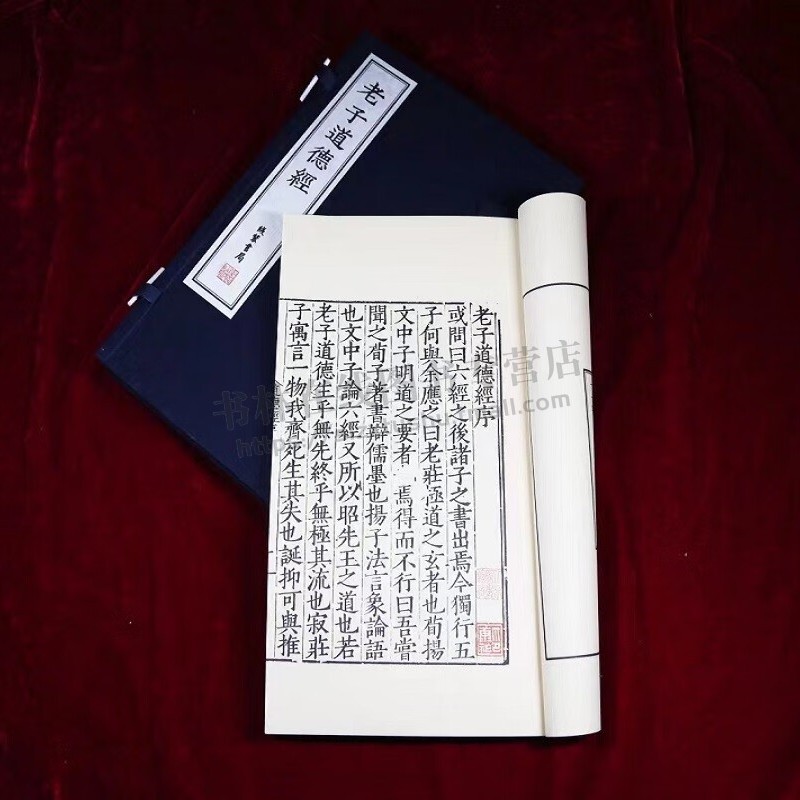 老子道德經
綫裝書局
老子道德經序
或問曰六經之後諸子之書出焉今獨行五
子何與余應之曰老莊極道之玄者也荀揚
文中子明道之要者 焉得而不行曰吾嘗
聞之荀子著書辯儒墨也揚子法言象論語
也文中子論六經又所以昭先王之道也若
老子道德生乎無先終乎無極其流也寂莊
子寓言一物我齊死生其失也誕抑可與推